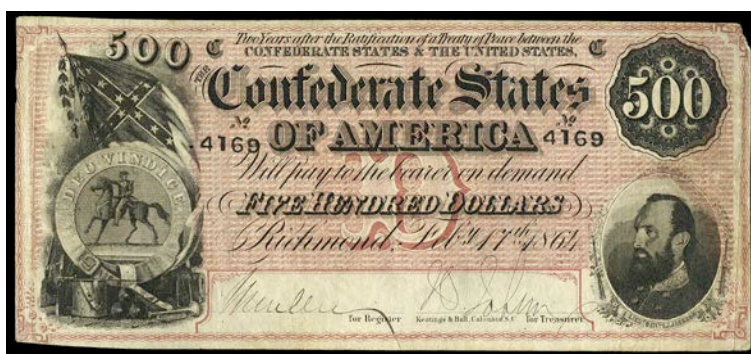 500 C Two Years after the Ratification of a Treaty of Peace between the C
CONFEDERATE STATES & THE UNITED STATES,
THE
Confederate States 500
No No
4169 OF AMERICA 4169
Will pay to the bearer on demand
DEO VINDICE
FIVE HUNDRED DOLLARS
Richmond, Feby. 17th 1864
for Register Keatinge & Ball, Columbia S.C. for Treasurer